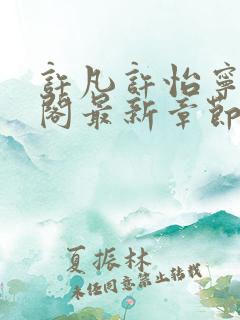 許凡許怡寧
閣最新章節
夏振林
未经同意禁止转载